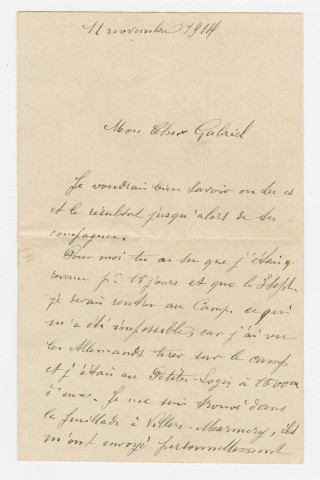 11 novembre 1914
Mon Cher Gabriel
Je voudrais bien savoir où tu es
et le résultat jusqu'alors de ta
campagne.
Pour moi tu as su que j'étais
revenu pr 15 jours et que le 3 Septbre
je devais rentrer au Camp. ce qui
m'a été impossible, car j'ai vu
les Allemands tirer sur le camp
et j'étais au Petites-Loges à 1500m
d'eux. Je me suis trouvé dans
la fusillade à Villers-Marmery, ils
m'ont envoyé personnellement